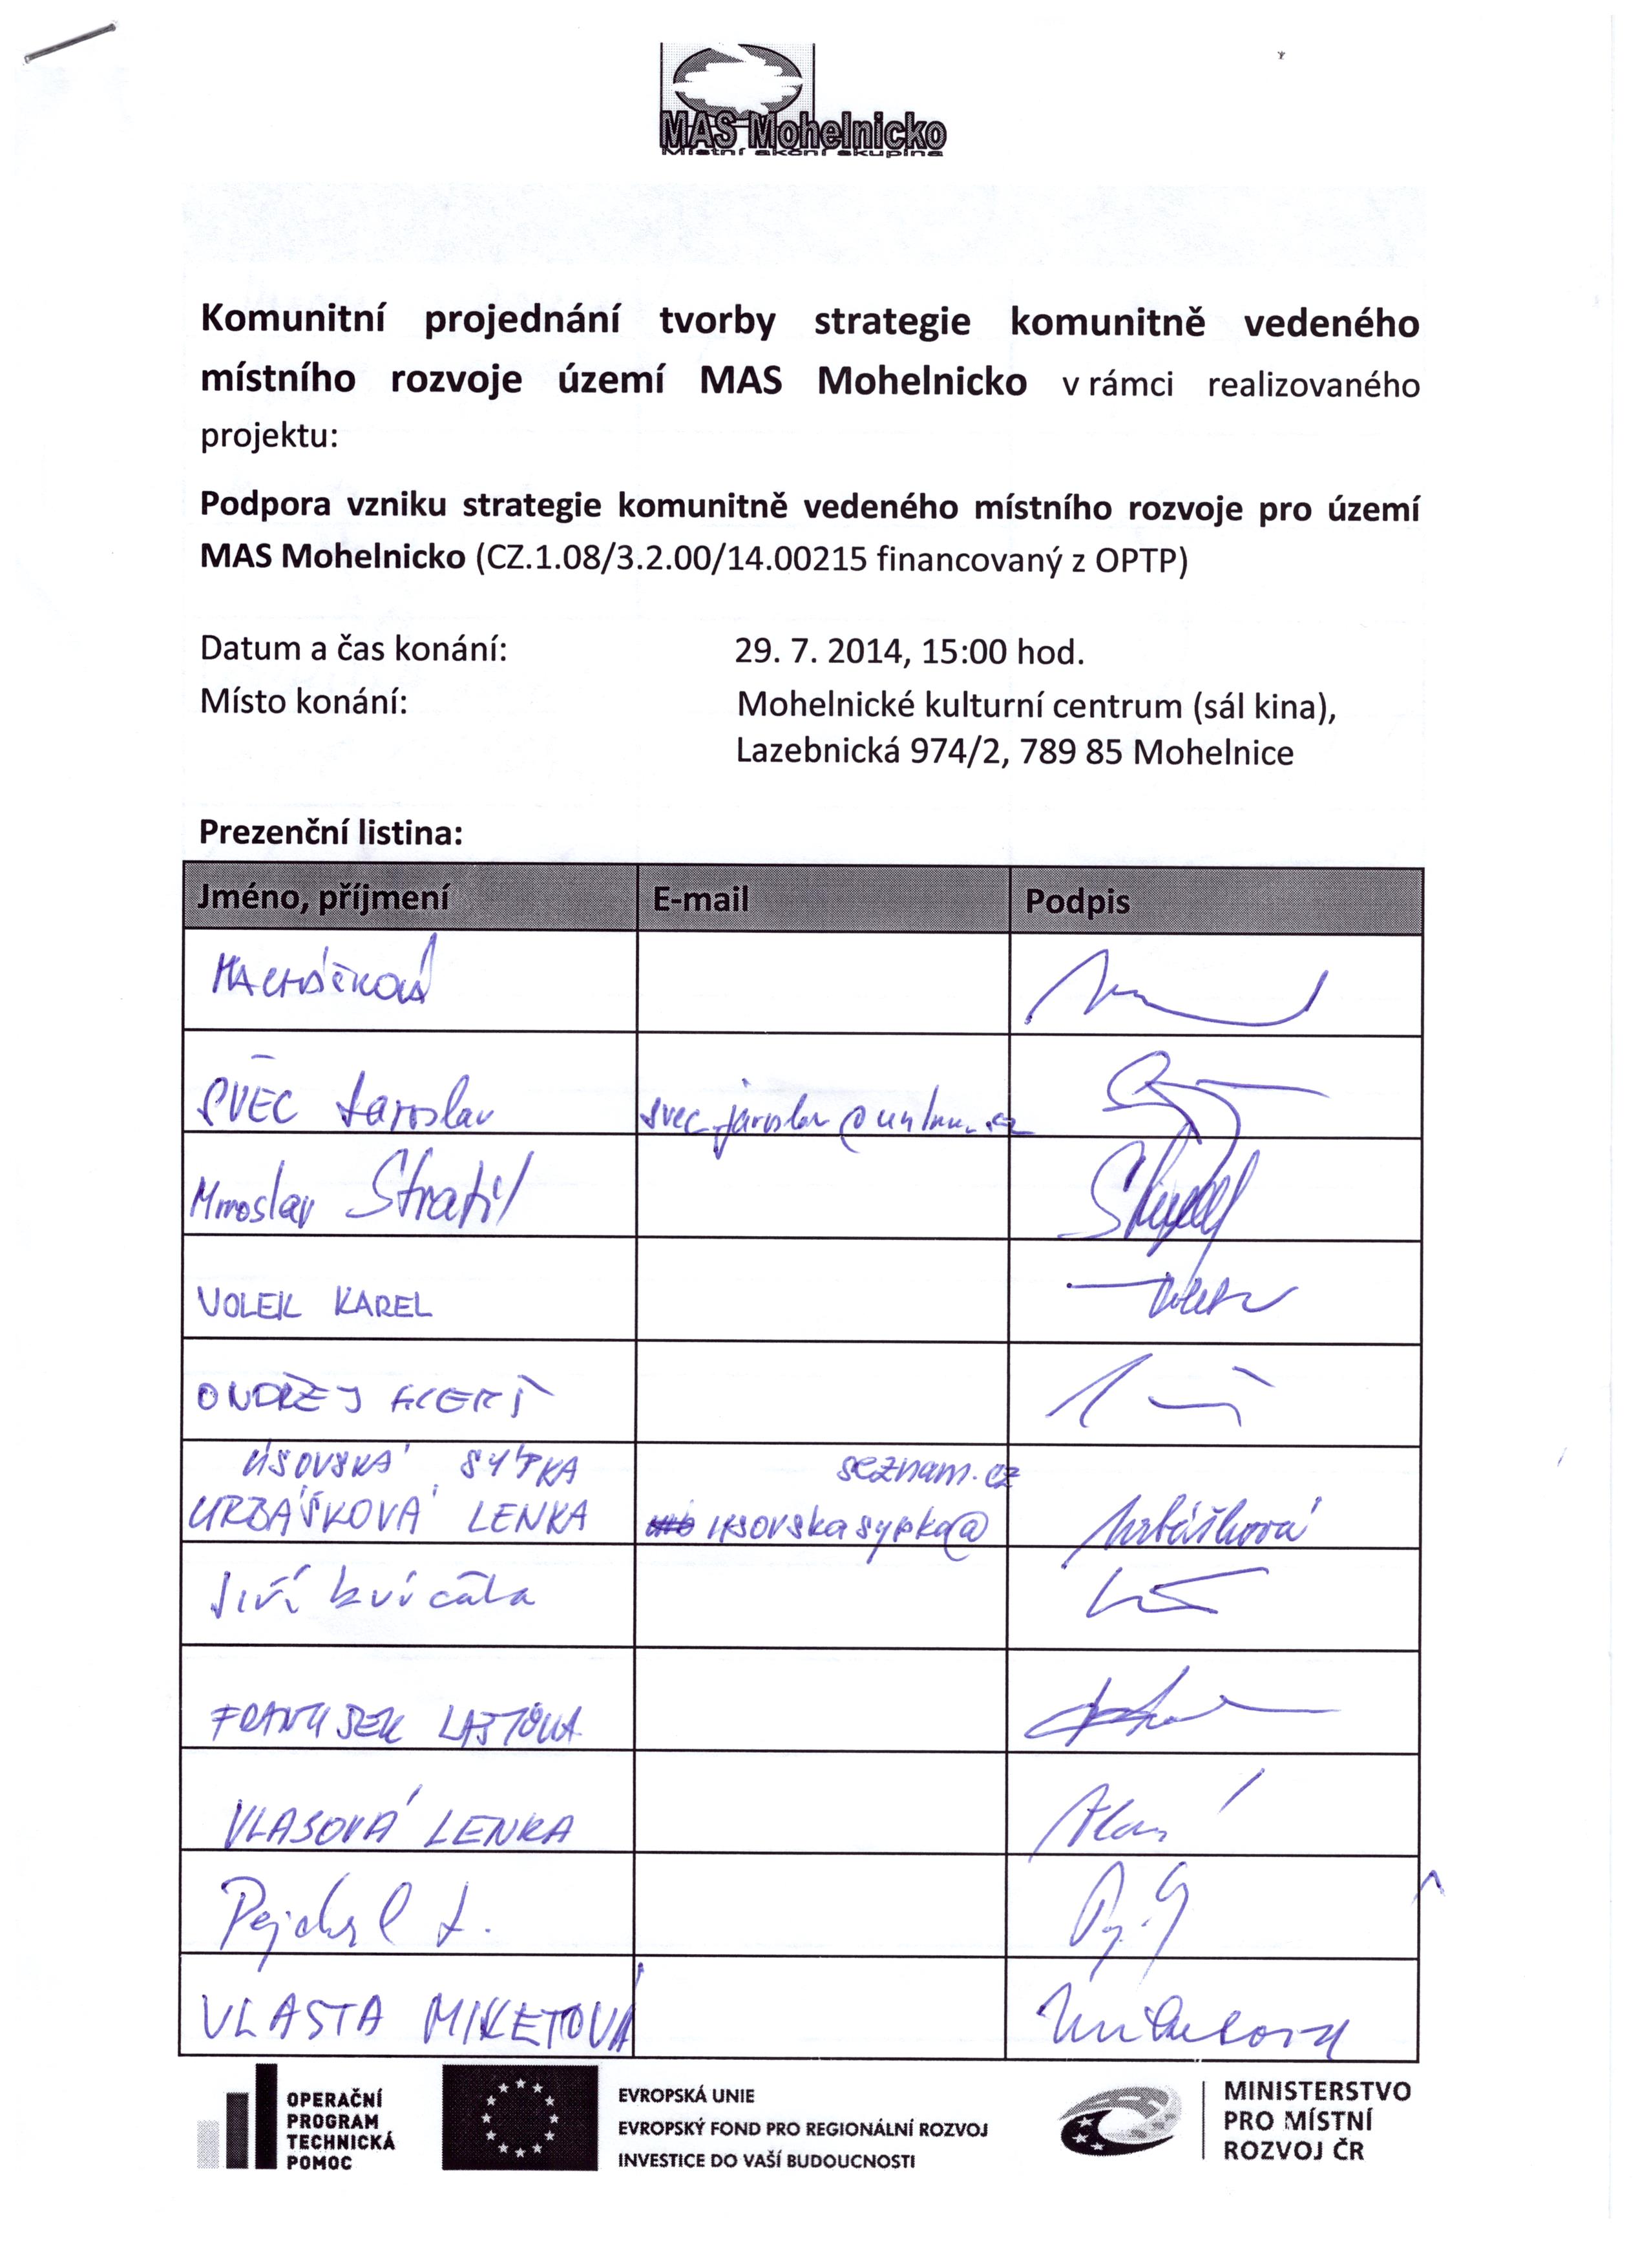 MAS Mohelnicko
Místní akční skupina
Komunitní projednání tvorby strategie komunitně vedeného
místního rozvoje území MAS Mohelnicko v rámci realizovaného
projektu:
Podpora vzniku strategie komunitně vedeného místního rozvoje pro území
MAS Mohelnicko (CZ.1.08/3.2.00/14.00215 financovaný z OPTP)
Datum a čas konání: 29. 7. 2014, 15:00 hod.
Místo konání: Mohelnické kulturní centrum (sál kina),
Lazebnická 974/2, 789 85 Mohelnice
Prezenční listina:
Jméno, příjmení E-mail Podpis
MACHÁČKOVÁ
ŠVEC Jaroslav
Miroslav Stratil
VOLEK KAREL
ONDŘEJ
ÚSOVSKÁ SÝPKA seznam.cz
URBÁŠKOVÁ LENKA usovskasypka@ Urbášková
Jiří Kvíčala
FRANTIŠEK
VLASOVÁ LENKA
VLASTA MIKETOVÁ
OPERAČNÍ
PROGRAM
TECHNICKÁ
POMOC
EVROPSKÁ UNIE
EVROPSKÝ FOND PRO REGIONÁLNÍ ROZVOJ
INVESTICE DO VAŠÍ BUDOUCNOSTI
MINISTERSTVO
PRO MÍSTNÍ
ROZVOJ ČR